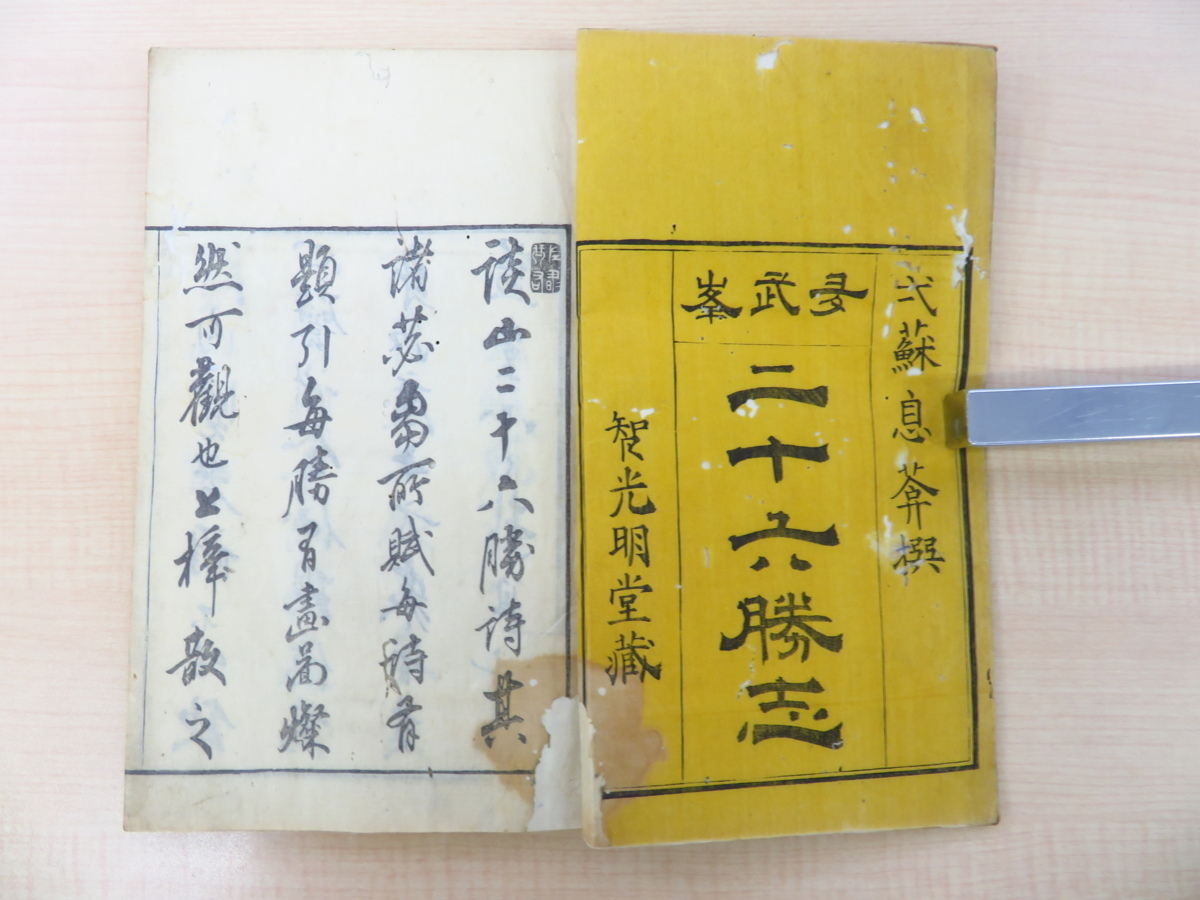 弍蘇息葊撰
多武峯
二十六勝志
智光明堂藏
談山二十六勝詩其
諸苾芻所賦每詩有
題引每勝有畫啚燦
然可觀也上梓散之